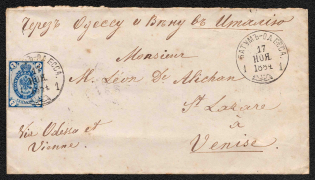 Черезъ Одессу и Вѣну въ Италію
Monsieur
M. Léon de Michan
St Lazare
à
Venise
via Odessa et
Vienne.
БАТУМЪ-ОДЕССА.
17
НОЯ.
1884
1 1